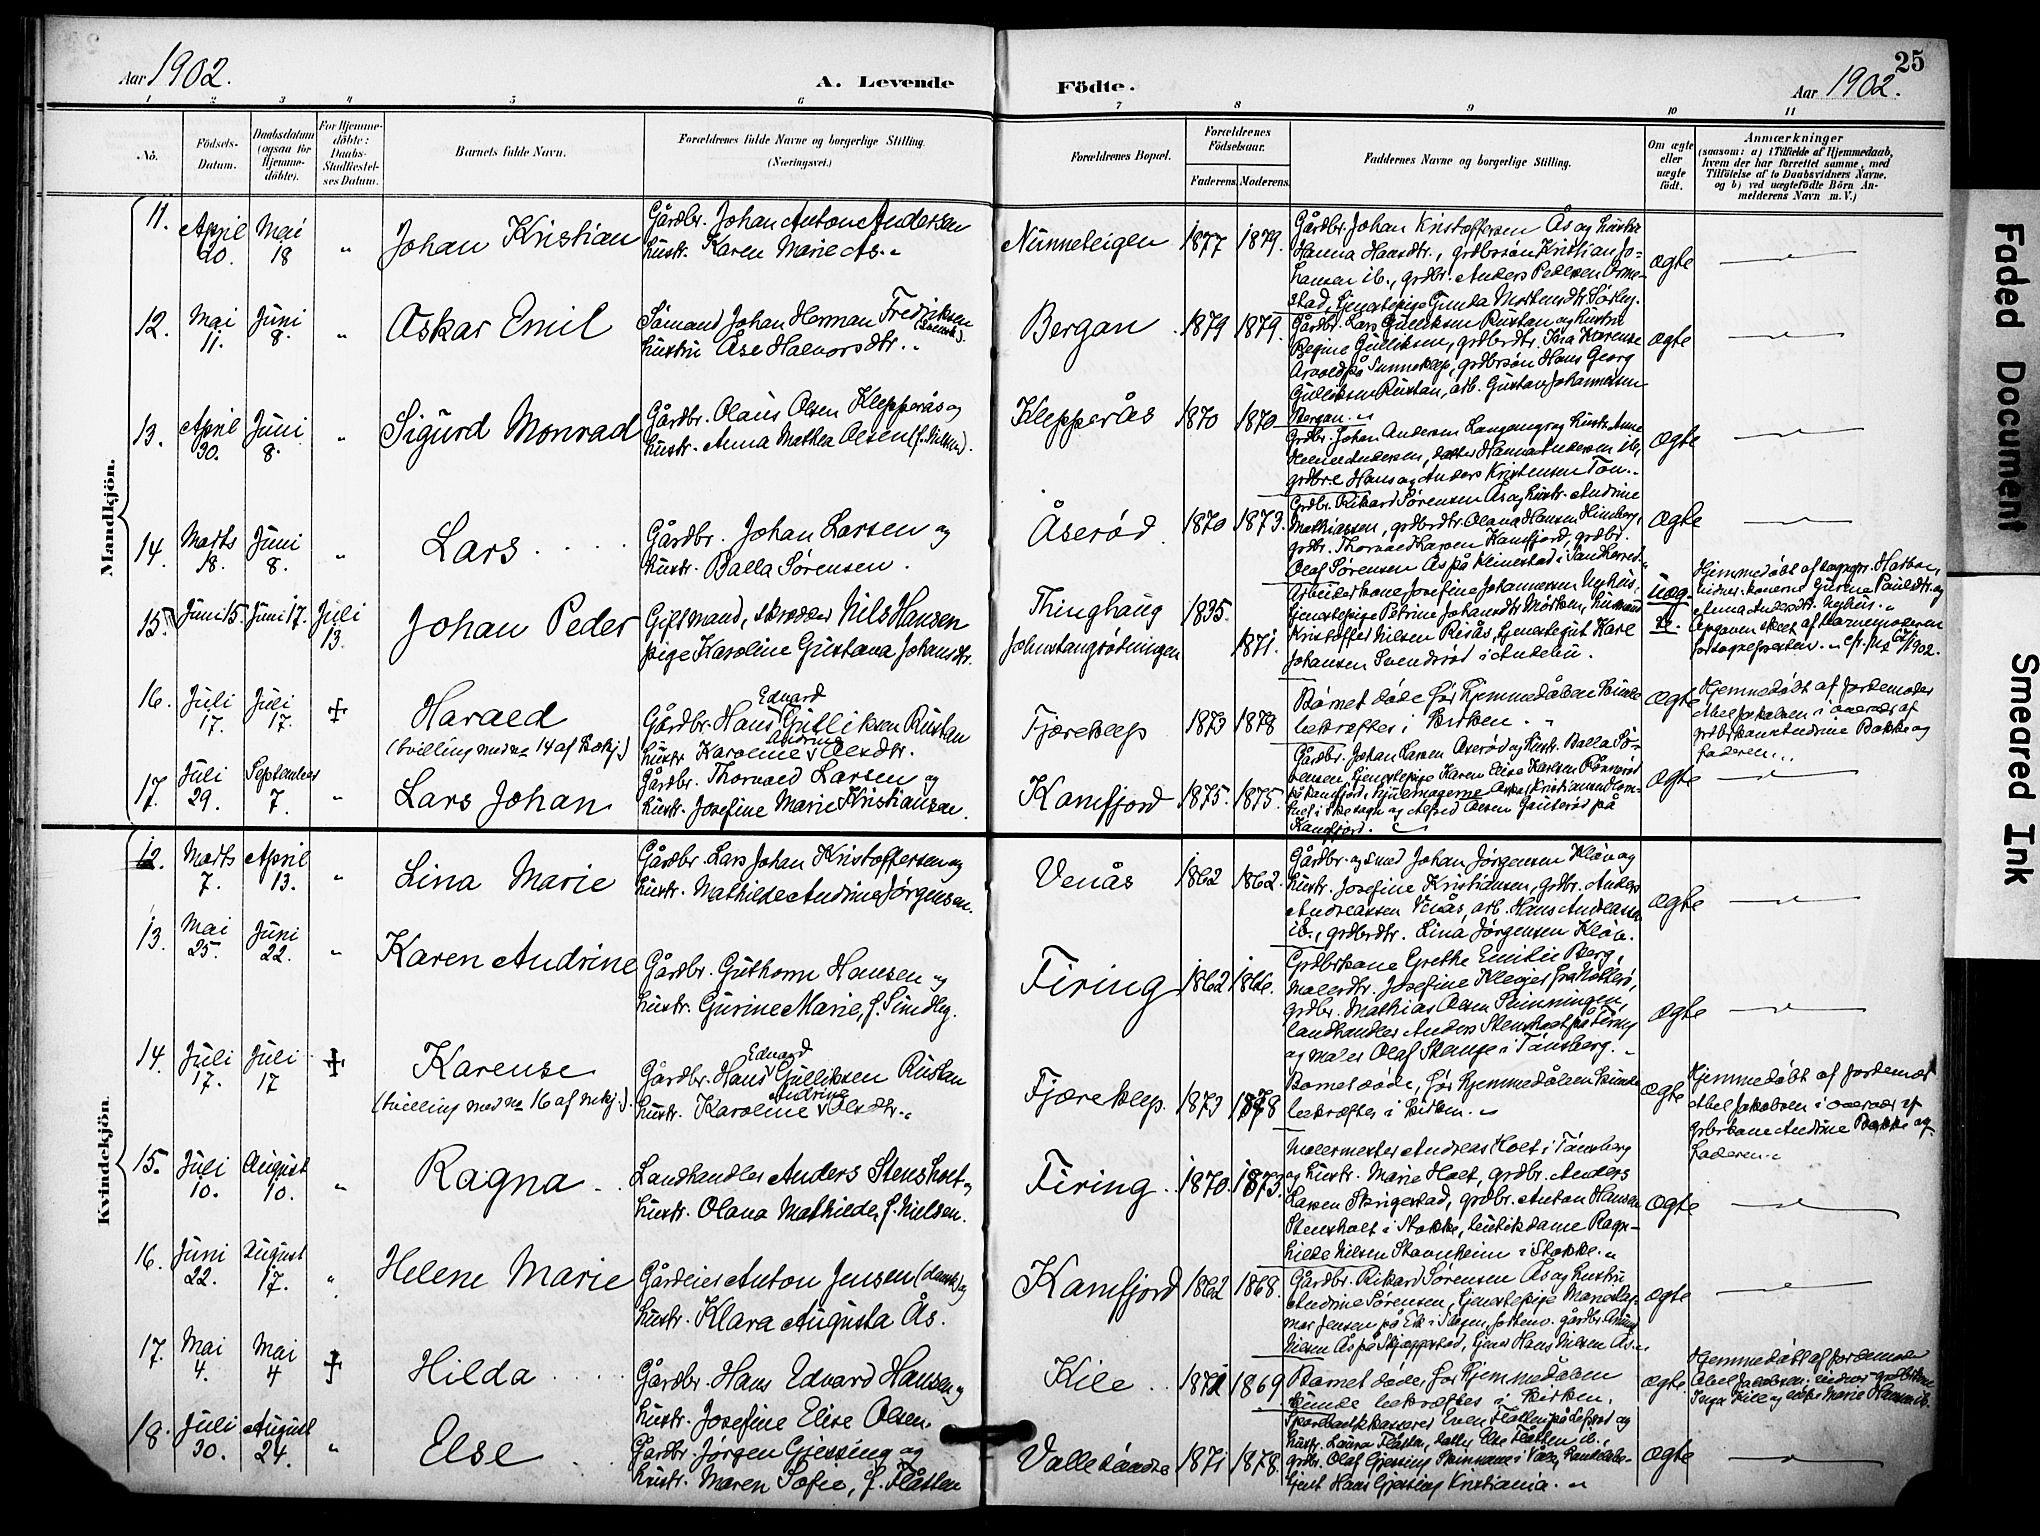 25
Aar 1902.
A. Levende
Födte.
Aar 1902.
1 2 3 4 5 6 7 8 9 10 11
No.
Födsels-
Datum.
Daabsdatum
(ogsaa for
Hjemme-
döbte).
For Hjemme-
döbte:
Daabs-
Stadfæstel-
ses Datum.
Barnets fulde Navn.
Forældrenes fulde Navne og borgerlige Stilling.
(Næringsvei.)
Forældrenes Bopæl.
Forældrenes
Födselsaar.
Faderens.
Moderens.
Faddernes Navne og borgerlige Stilling.
Om ægte
eller
uægte
födt.
Anmærkninger
(saasom: a) i Tilfælde af Hjemmedaab,
hvem der har forrettet samme, med
Tilföielse af to Daabsvidners Navne,
og b) ved uægtefödte Börn An-
melderens Navn m. V.)
Mandkjön.
11. April 20. Mai 18 " Johan Kristian
Gårdbr. Johan Anton Andersen
hustr. Karen Marie Ås.
Nunneteigen 1877 1879.
Gårdbr. Johan Kristoffersen Ås og hustr.
Hanna Hansdtr., grdbrsøn Kristian Jo-
hansen ib., grdbr. Anders Pedersen
ægte
12. Mai 11. Juni 8. " Oskar Emil
Sömand Johan Herman Fredriksen
(svensk).
hustru Åse Halvorsdtr.
Bergan 1879 1879.
Gårdbr. Lars Gulliksen Rustan og hustru
Regine Gulliksen, grdbrdtr.
grdbrsøn Hans Georg
Gulliksen Rustan, arb. Gustav Johannesen
Bergan.
ægte
13. April 30. Juni 8. " Sigurd Monrad
Gårdbr. Olaus Olsen Klepperås og
hustr. Anna Mathea Olsen (f. Nilsen).
Klepperås 1870 1870
Grdbr. Johan Andersen og hustr. Anne
Andersen, datter Hanna Andersen ib.,
grdbre Hans og Anders Kristensen
ægte
14. Marts 18. Juni 8. " Lars
Gårdbr. Johan Larsen og
hustr. Balla Sørensen.
Åserød. 1870 1873.
Grdbr. Rikard Sørensen Ås og hustr. Andrine
Mathiassen, grdbrdtr. Olava Hansen
grdbr. Thorvald Larsen Kamfjord, grdbr.
Olaf Sørensen Ås på i Sandherred.
ægte
15. Juni 15. Juni 17. Juli 13. Johan Peder
Gift mand, skrædder Nils Hansen
pige Karoline Gustava Johansdtr.
Thinghaug 1835.
1871.
Arbeiderkone Josefine Johannessen Nyhus,
tjenestepige Petrine Johansdtr.
Kristoffer Nilsen Risås, tjenestegut Karl
Johansen Svendsrød i Andebu.
uæg-
te.
Hjemmedøbt af
Gurine Paulsdtr. og
Anna Andersdtr. Nyhus.
Opgaven skeet af Barnemoderen
16. Juli 17. Juli 17. Harald
(tvilling med no 14 af kvkj.)
Gårdbr. Hans Edvard Gulliksen Rustan
hustr. Karoline Andrine Olsdtr.
Fjæreklep 1873 1878
Barnet døde før Hjemmedåben kunde
bekræftes i kirken.
ægte
Hjemmedøbt af Jordemoder
Abel Jakobsen i overvær af
grdbrkone Andrine Bakke og
faderen.
17. Juli 29. September 7. " Lars Johan
Gårdbr. Thorvald Larsen og
hustr. Josefine Marie Kristiansen.
Kamfjord 1875. 1875.
Gårdbr. Johan Larsen Åserød og hustr. Balla Sø-
rensen, tjenestepige Karen Elise Karlsen
på Kamfjord,
Kamfjord.
ægte
Kvindekjön.
12. Marts 7. April 13. " Lina Marie
Gårdbr. Lars Johan Kristoffersen og
hustr. Mathilde Andrine Jørgensen.
Venås 1862 1862.
Gårdbr. og smed Johan Jørgensen Kløv og
hustr. Josefine Kristiansen, grdbr. Anders
Andreassen Venås, arb. Hans Andreassen
ib., grdbrdtr. Lina Jørgensen Kløv.
ægte
13. Mai 25. Juni 22. " Karen Andrine
Gårdbr. Guthorm Hansen og
hustr. Gurine Marie, f. Sundby.
Firing 1862 1866.
Grdbrkone Grethe Emilie Berg,
grdbr. Mathias Olsen
landhandler Anders Stensholt på Firing
og maler Olaf Stange i Tønsberg.
ægte
14. Juli 17. Juli 17 Karense
(tvilling med no 16 af mkj.).
Gårdbr. Hans Edvard Gulliksen Rustan
hustr. Karoline Andrine Olsdtr.
Fjæreklep. 1873 1878
Barnet døde, før hjemmedåben kunde
bekræftes i kirken.
ægte
Hjemmedøbt af Jordemod.
Abel Jakobsen i overvær af
grdbrkone Andrine Bakke og
faderen.
15. Juli 10. August 10. " Ragna
Landhandler Anders Stensholt og
hustr. Olava Mathilde, f. Nielsen.
Firing. 1870. 1873.
Malermester Andreas Holt i Tønsberg
og hustr. Marie Holt, grdbr. Anders
Larsen grdbr. Anton Hansen
Stensholt i Stokke, butikdame Ragn-
hilde Nilsen Stavnheim i Stokke.
ægte
16. Juni 22. August 17. " Helene Marie
Gårdeier Anton Jensen (dansk) og
hustr. Klara Augusta Ås.
Kamfjord 1862 1868.
Gårdbr. Rikard Sørensen Ås og hustru
Andrine Sørensen, tjenestepige
Jensen på Eik i
Nilsen Ås på Hans Nilsen Ås.
ægte
17. Mai 4. Mai 4 Hilda
Gårdbr. Hans Edvard Hansen og
hustr. Josefine Elise Olsen.
Kile 1871 1869
Barnet døde før Hjemmedåben
kunde bekræftes i kirken.
ægte.
Hjemmedøbt af Jordemoder
Abel Jakobsen;
18. Juli 30. August 24. " Else
Gårdbr. Jørgen Gjessing og
hustr. Maren Sofie, f. Flåtten
1871 1878.
Sparebankkasserer Even Flåtten og
hustr. Laura Flåtten, datter Else Flåtten ib.,
grdbr. Olaf Gjessing
Hans Gjessing Kristiania.
ægte
Faded Document
Smeared Ink